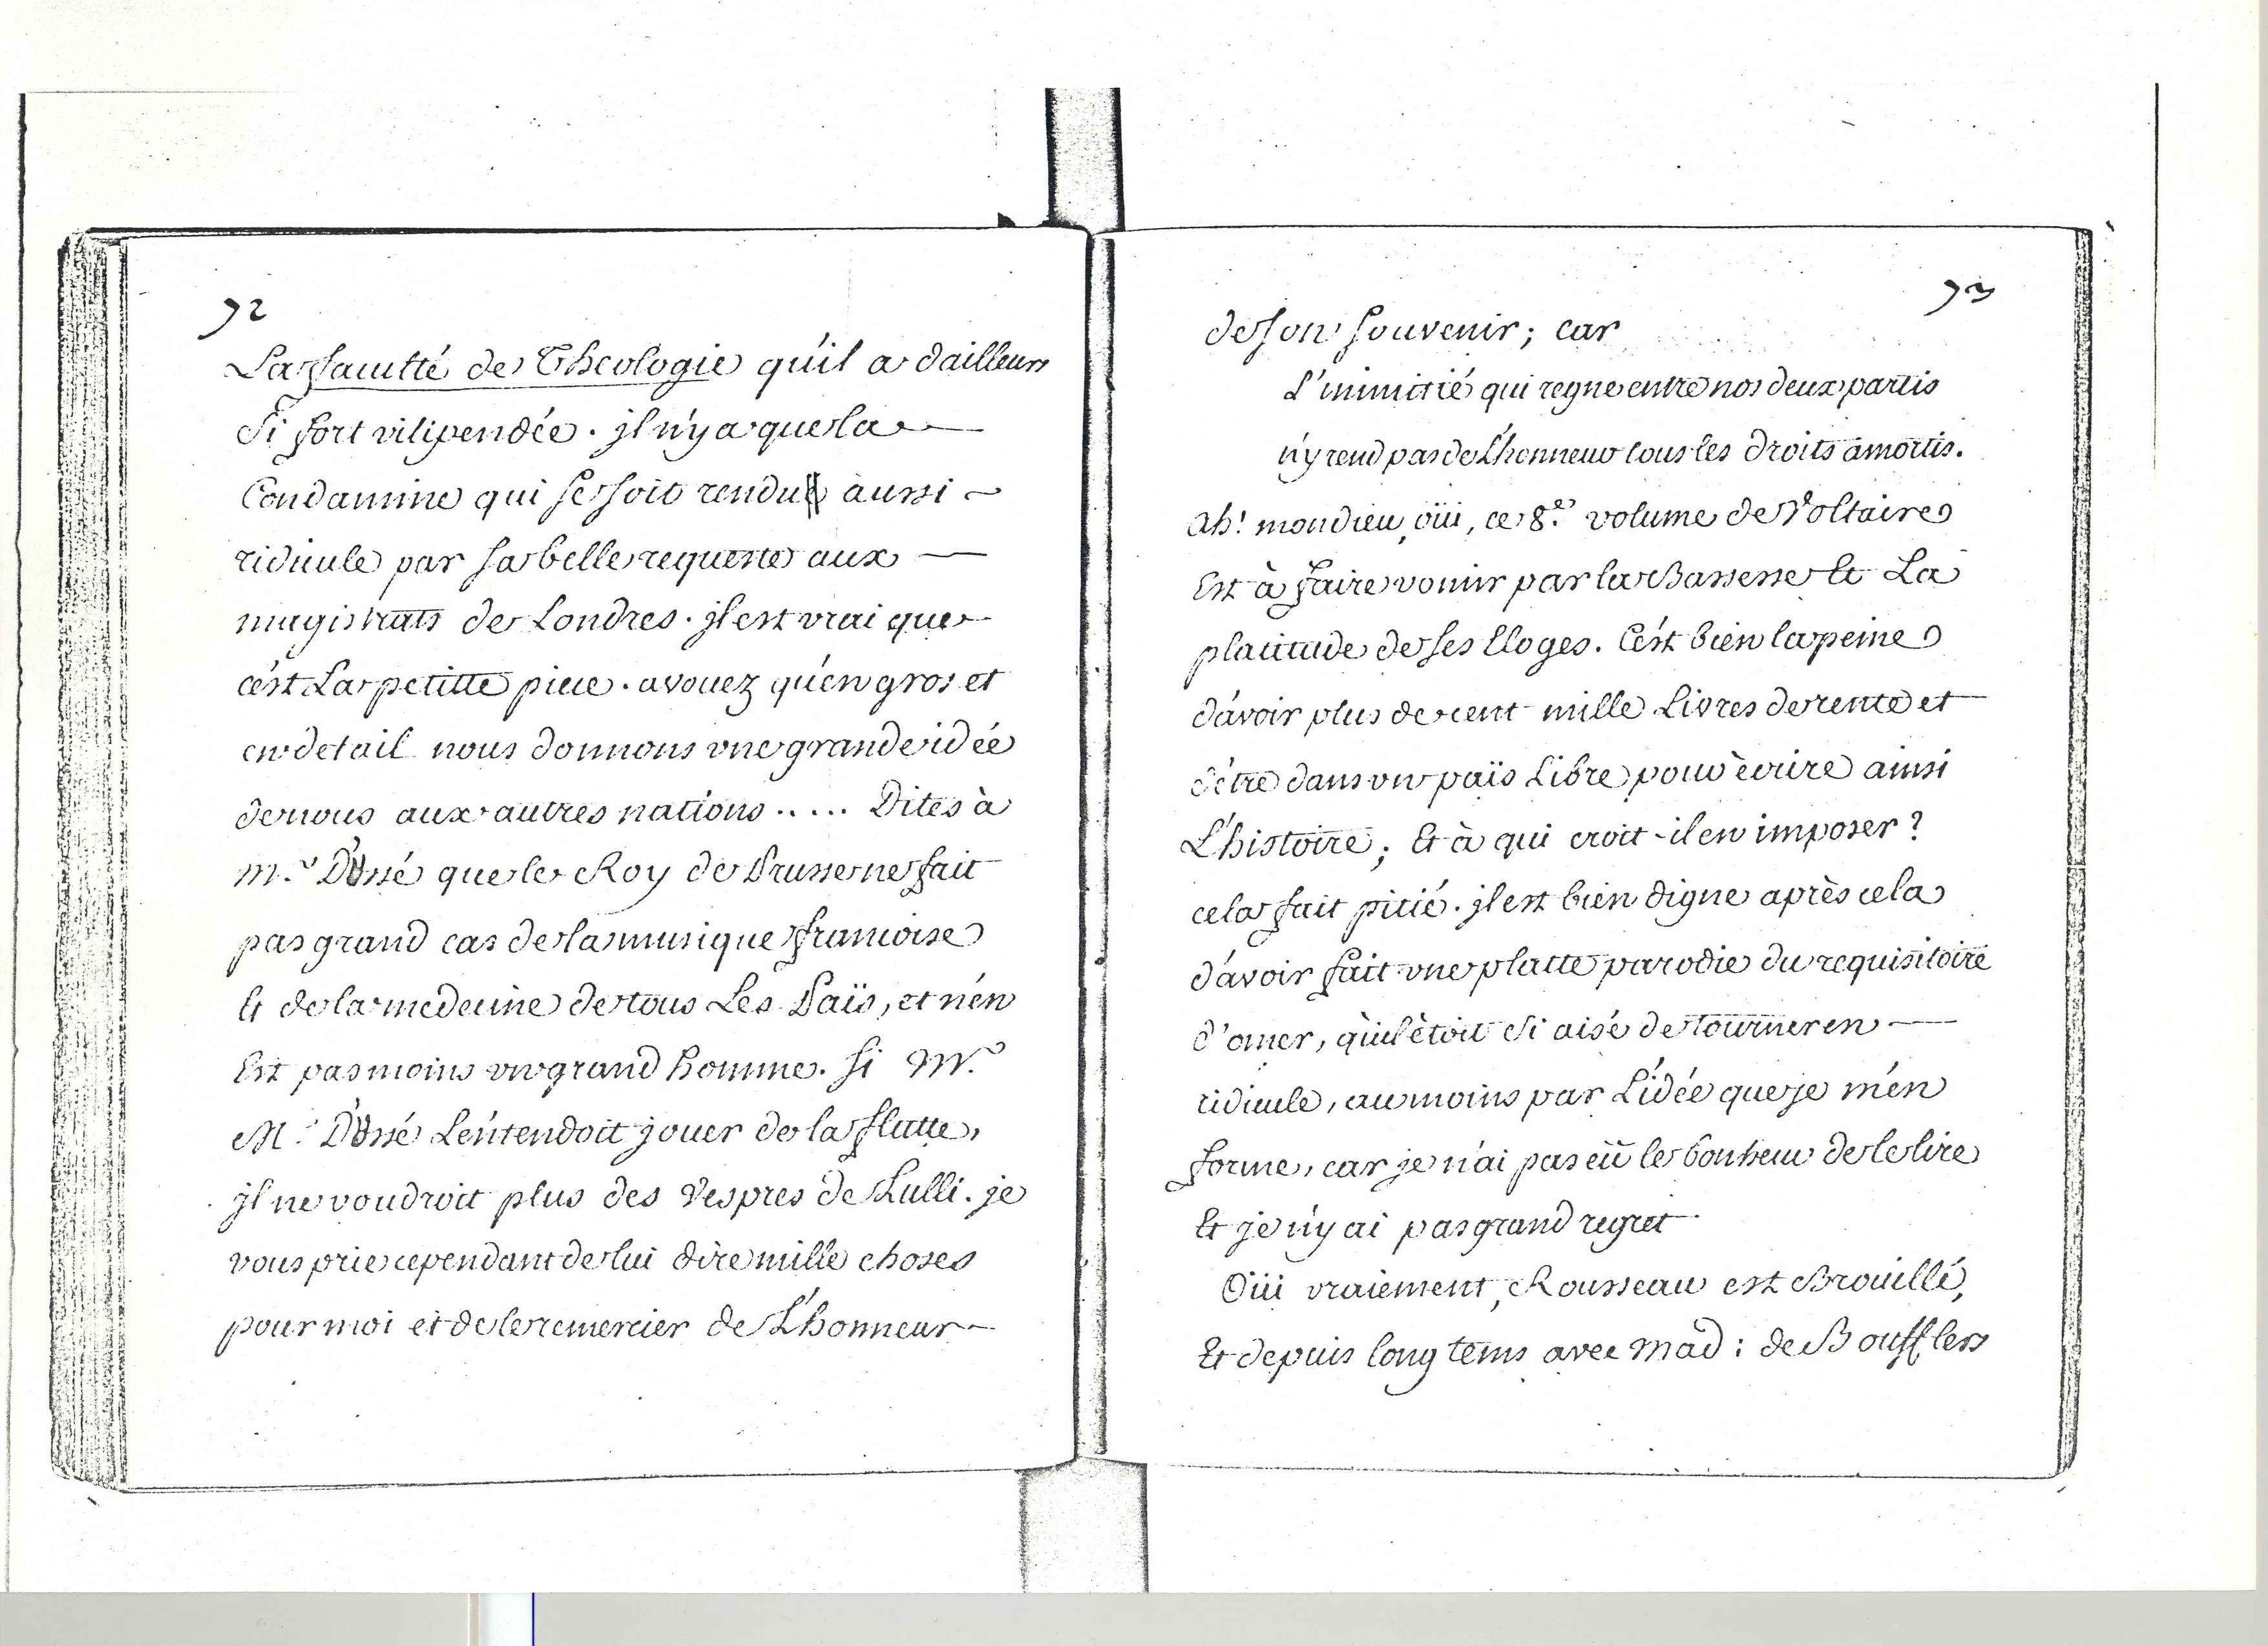 72
La faculté de Theologie qu'il a dailleurs
Si fort vilipendée. jl n'y a que la
Condamine qui se soit rendu aussi
ridicule par sa belle requeste aux
magistrats de Londres. jl est vrai que
c'est La petitte piece. avouez qu'en gros et
en detail nous donnons une grande idée
de nous aux autres nations ..... Dites à
M.r D'Ussé que le Roy de Prusse ne fait
pas grand cas de la musique francoise
Et de la medecine de tous Les Païs, et n'en
Est pas moins un grand homme. Si M.r
M.r D'Ussé L'entendoit jouer de la flutte,
jl ne voudroit plus des Vespres de Lulli. je
vous prie cependant de lui dire mille choses
pour moi et de le remercier de L'honneur
73
de son souvenir; car
L'inimitié qui regne entre nos deux partis
n'y rend pas de L'honneur tous les droits amortis.
Ah! mon dieu, oüi, ce 8.e volume de Voltaire
Est à faire vomir par la Bassesse Et La
platitude de ses Eloges. C'est bien la peine
d'avoir plus de cent mille Livres de rente et
d'être dans un païs Libre pour ècrire ainsi
L'histoire; Et à qui croit-il en imposer?
cela fait pitié. jl est bien digne après cela
d'avoir fait une platte parodie du requisitoire
d'omer, qu'il ètoit si aisé de tourner en
ridicule, au moins par L'idée que je m'en
forme, car je n'ai pas eü le bonheur de le lire
Et je n'y ai pas grand regret.
Oüi vraiement, Rousseau est Brouillé,
Et depuis long tems avec Mad: de Boufflers